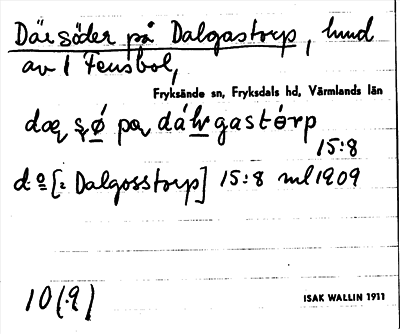 Där söder på Dalgastorp, lund
av 1 Fensbol,
Fryksände sn, Fryksdals hd, Värmlands län
gastörp
15:8
do [: Dalgosstorp] 15:8 ml 1909
10(.9)
ISAK WALLIN 1911